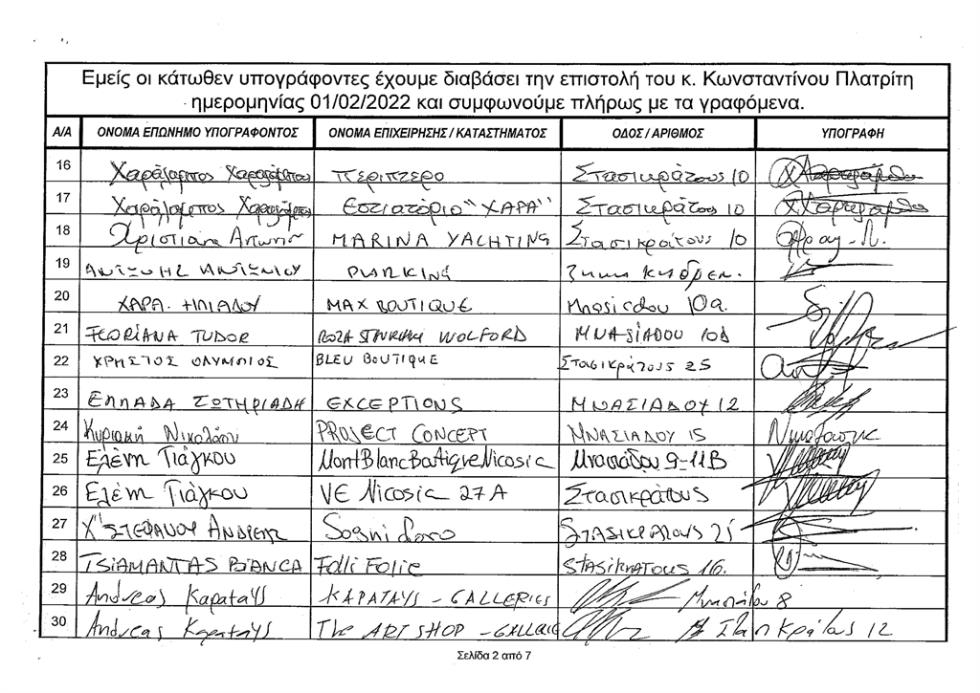 Εμείς οι κάτωθεν υπογράφοντες έχουμε διαβάσει την επιστολή του κ. Κωνσταντίνου Πλατρίτη
ημερομηνίας 01/02/2022 και συμφωνούμε πλήρως με τα γραφόμενα.
Α/Α ΟΝΟΜΑ ΕΠΩΝΗΜΟ ΥΠΟΓΡΑΦΟΝΤΟΣ ΟΝΟΜΑ ΕΠΙΧΕΙΡΗΣΗΣ / ΚΑΤΑΣΤΗΜΑΤΟΣ ΟΔΟΣ / ΑΡΙΘΜΟΣ ΥΠΟΓΡΑΦΗ
16 Χαράλαμπος Χαραλάμπους περίπτερο Στασικράτους 10
17 Χαράλαμπος Εστιατόριο "ΧΑΡΑ" Στασικράτους 10
18 Χριστιάνα MARINA YACHTING Στασικράτους 10
19 ΑΝΤΩΝΗΣ ΑΝΤΩΝΙΟΥ PARKING
20 ΧΑΡΑ. ΗΛΙΑΔΟΥ MAX BOUTIQUE 10a.
21 FLORIANA TUDOR WOLFORD ΜΝΑΣΙΑΔΟΥ
22 ΧΡΗΣΤΟΣ ΟΛΥΜΠΙΟΣ BLEU BOUTIQUE Στασικράτους 25
23 ΕΛΛΑΔΑ ΣΩΤΗΡΙΑΔΗ EXCEPTIONS ΜΝΑΣΙΑΔΟΥ 12
24 Κυριακή Νικολάου PROJECT CONCEPT ΜΝΑΣΙΑΔΟΥ 15
25 Ελένη Γιάγκου MontBlanc Boutique Nicosia Μνασιάδου 9-11B
26 Ελένη Γιάγκου VE Nicosia 27A Στασικράτους
27 Χ"ΣΤΕΦΑΝΟΥ ΑΝΔΡΕΑΣ Sogni Doro ΣΤΑΣΙΚΡΑΤΟΥΣ
28 TSIAMANTAS BIANCA Folli Follie STASIKRATOUS 16.
29 Andreas Kapatays KAPATAYS - GALLERIES Μνασιάδου 8
30 Andreas Kapatays The ART SHOP - Στασικράτους 12
Σελίδα 2 από 7